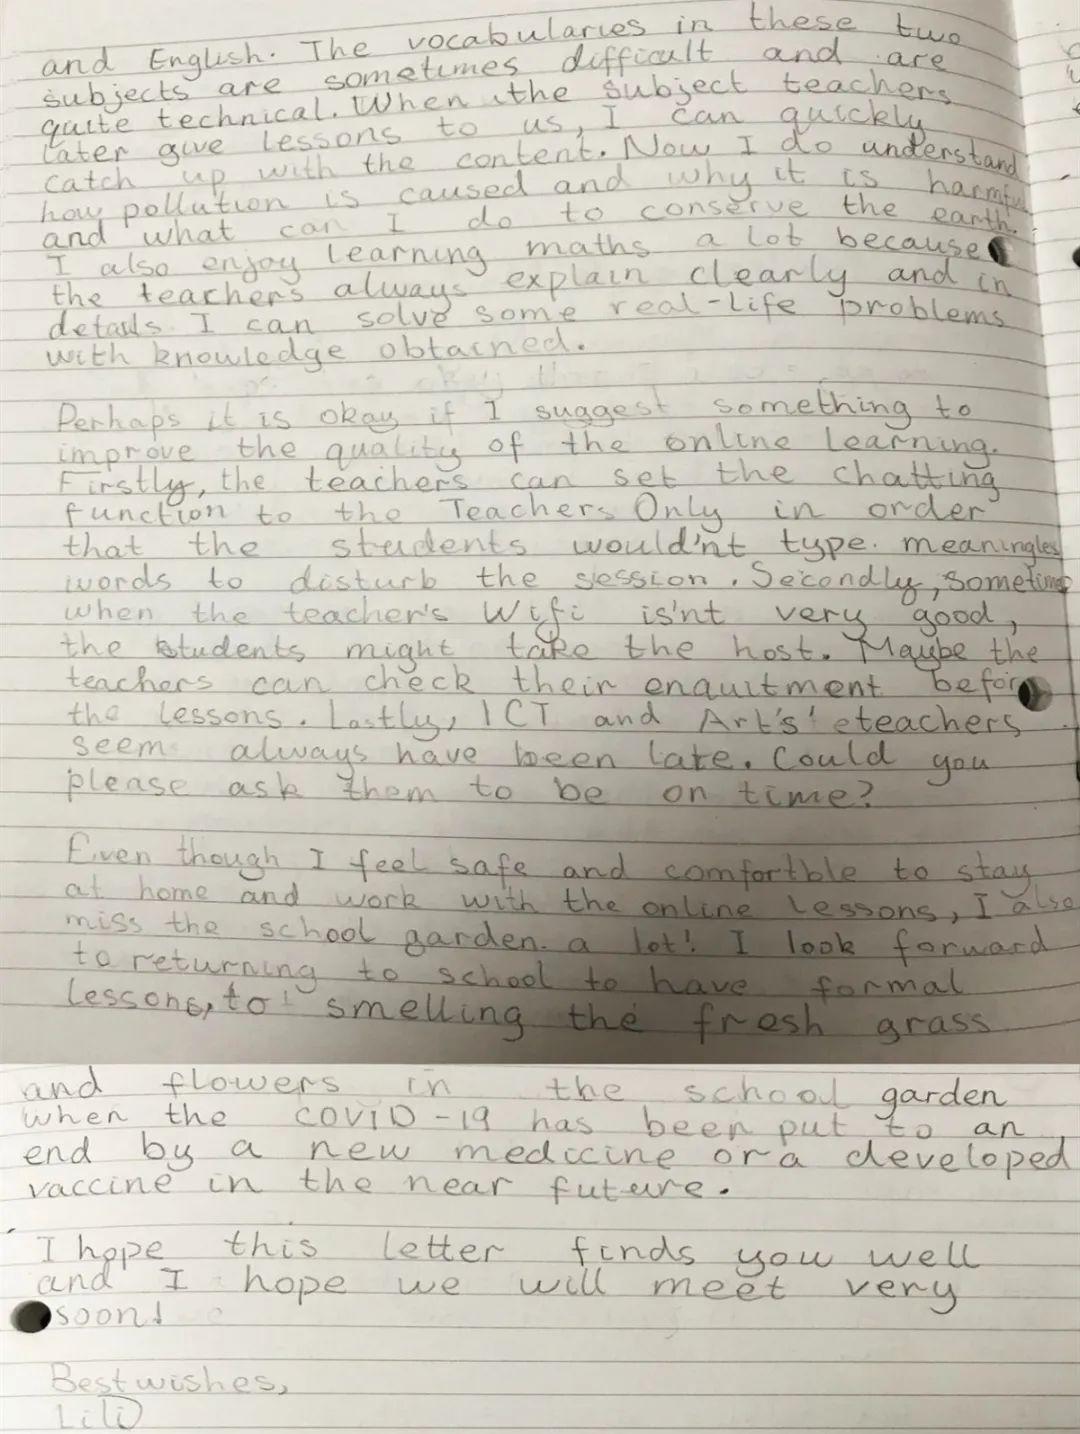 and English. The vocabularies in these two
subjects are sometimes difficult and are
quite technical. When the subject teachers
later give lessons to us, I can quickly
catch up with the content. Now I do understand
how pollution is caused and why it is harmful
and what can I do to conserve the earth.
I also enjoy learning maths a lot because
the teachers always explain clearly and in
details. I can solve some real-life problems
with knowledge obtained.
Perhaps it is okay if I suggest something to
improve the quality of the online learning.
Firstly, the teachers can set the chatting
function to the Teachers Only in order
that the students would'nt type. meaningles
words to disturb the session. Secondly, sometimes
when the teacher's Wifi is'nt very good,
the students might take the host. Maybe the
teachers can check their enquitment before
the lessons. Lastly, ICT and Art's' eteachers
seem always have been late. Could you
please ask them to be on time?
Even though I feel safe and comfortble to stay
at home and work with the online lessons, I also
miss the school garden. a lot! I look forward
to returning to school to have formal
lessons, to smelling the fresh grass
and flowers in the school garden
when the COVID-19 has been put to an
end by a new medicine or a developed
vaccine in the near future.
I hope this letter finds you well
and I hope we will meet very
soon!
Best wishes,
Lili